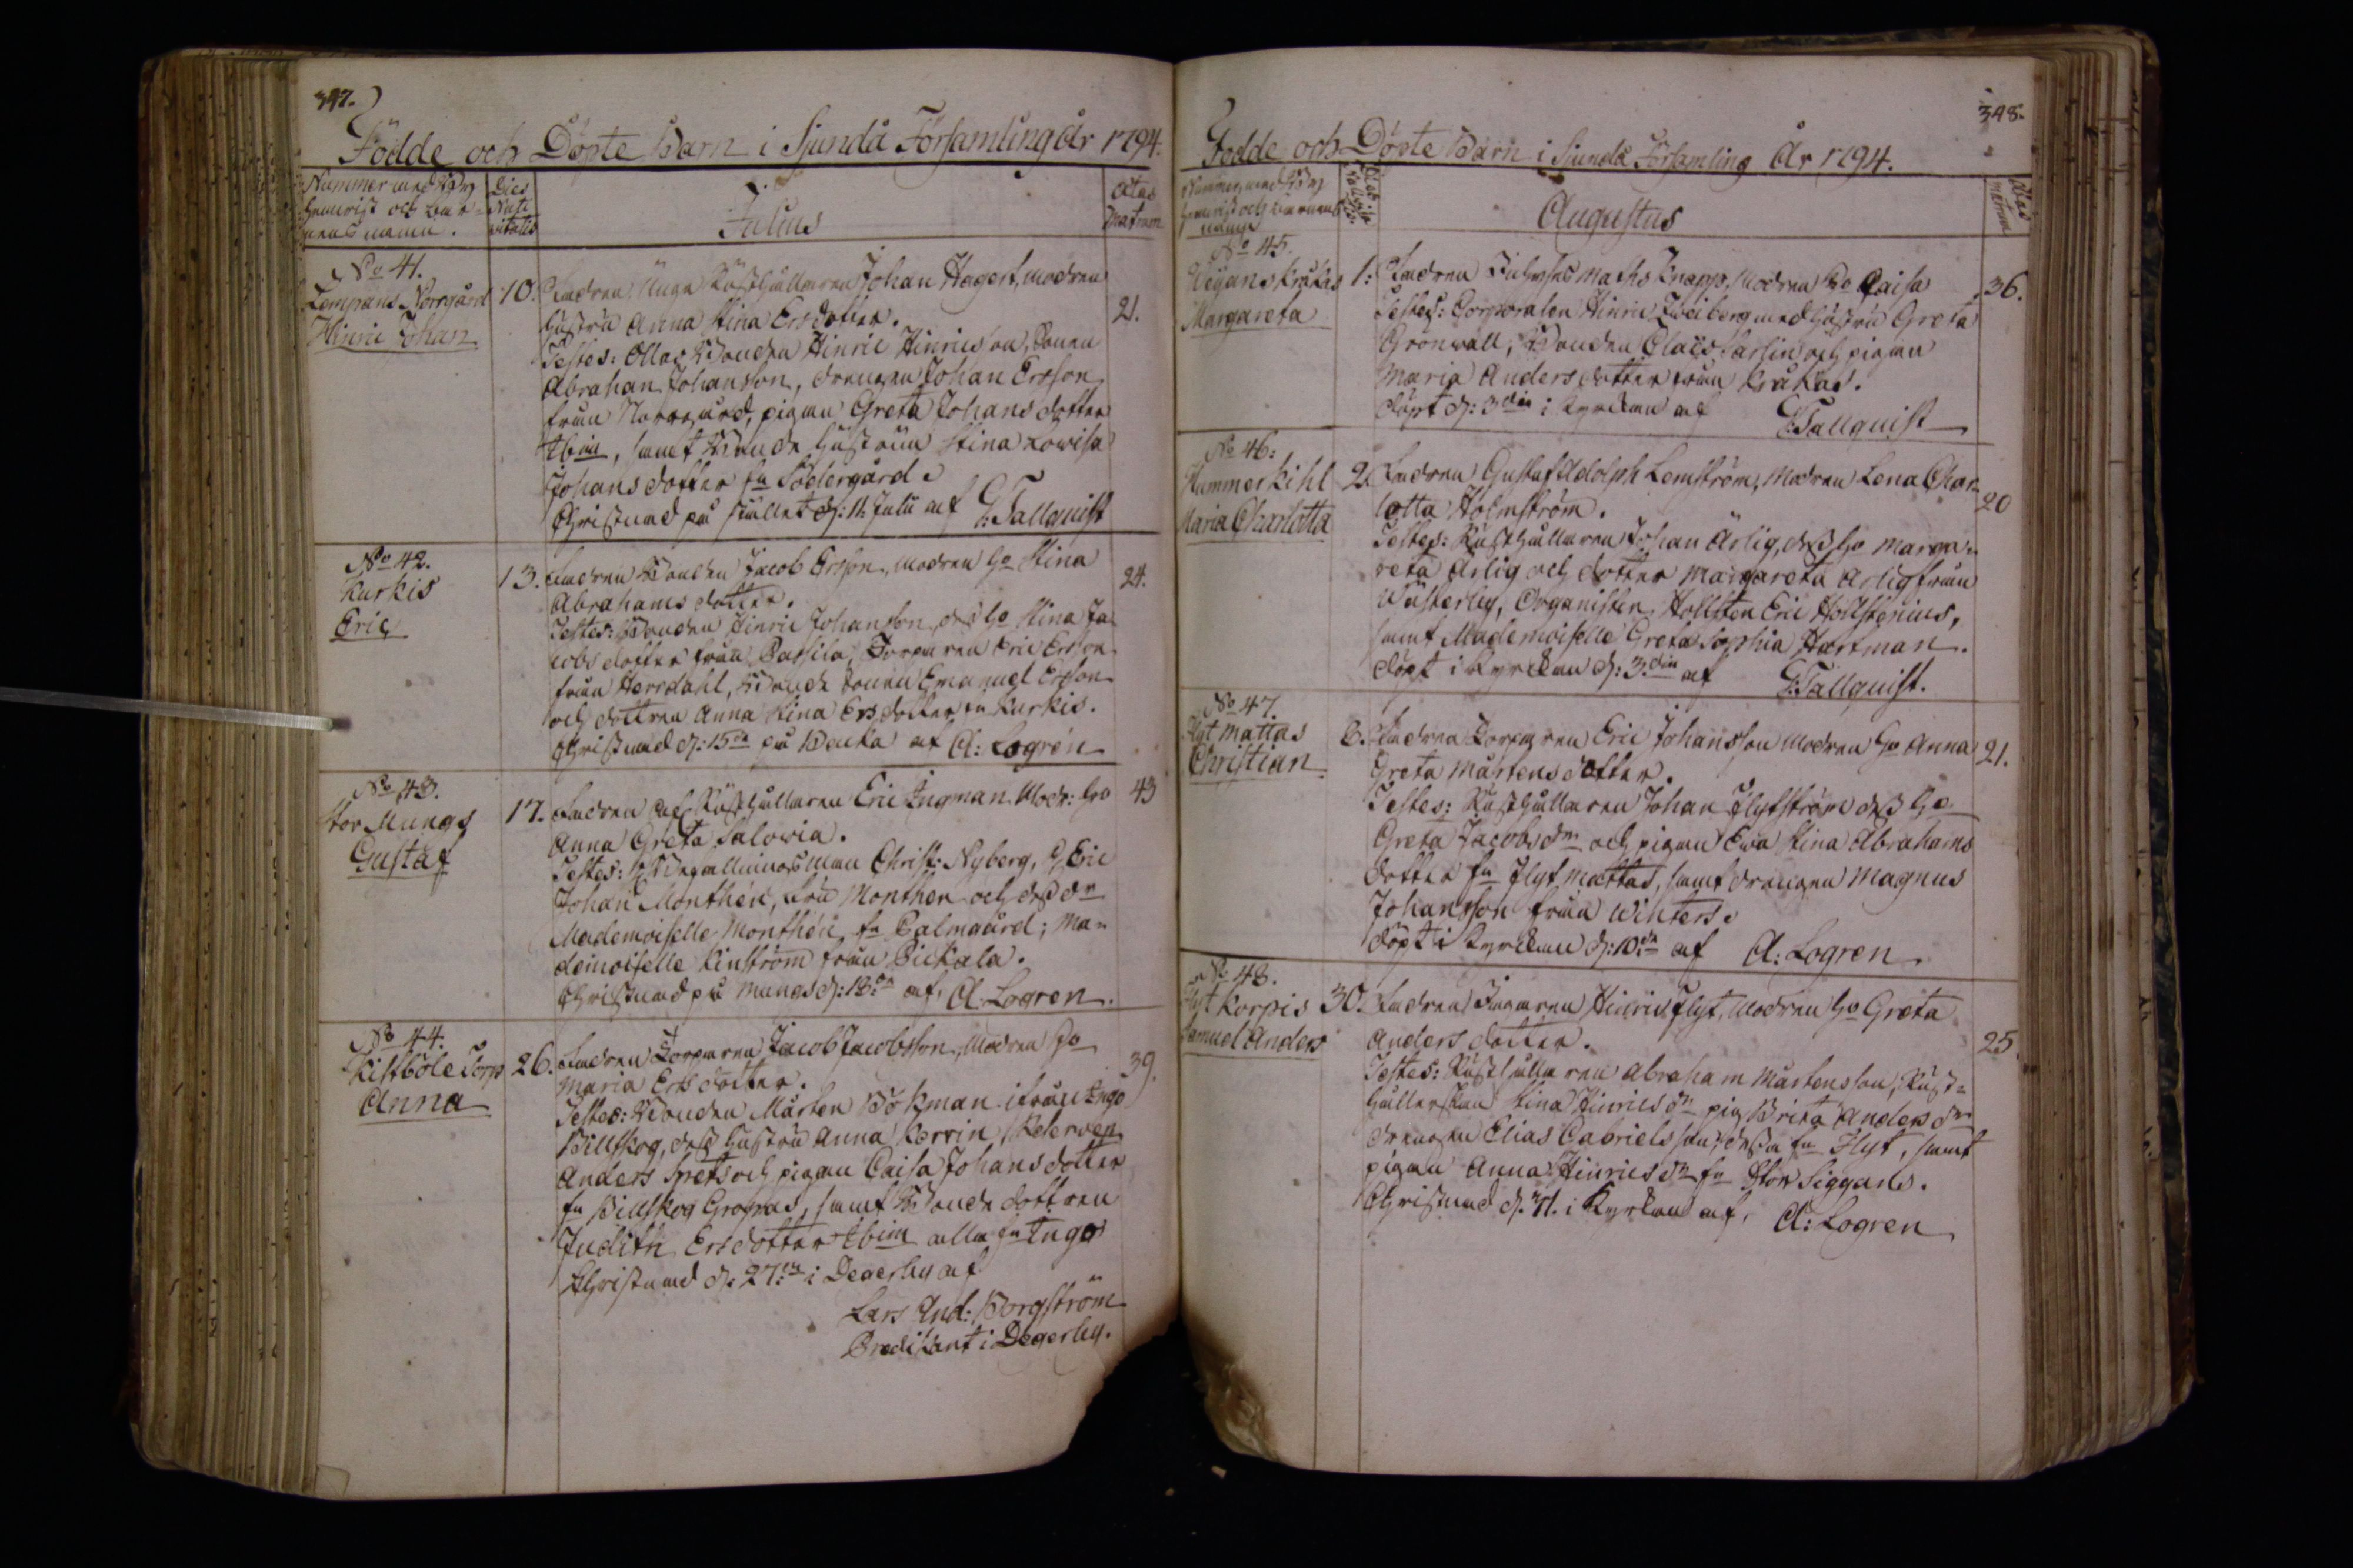 347.
Födde och Döpte Barn i Sjundå Församling År 1794.
Nummer med
Hemvist och Bar-
nens namn.
Dies
Nati
vitatis
Julius
Ætas
Matrum
No 41.
Lempans Norrgård
Hinric Johan
10. Fadren Unga Rusthållaren Johan Hagert, modren
hustru Anna Stina Ersdotter.
21.
Testes: Bonden Hinric Hinricsson, Sonen
Abraham Johansson, drengen Johan Ersson
från Norrgård, pigan Greta Johansdotter
ibm, samt Bonde hustrun Stina Lowisa
Johansdotter fn Södergård.
Christnad på stället d: 11. Julii af G: Tallquist
No 42.
Kurkis
Eric
13. Fadren Bonden Jacob Ersson, modren ho Stina
Abrahams dotter.
24.
Testes: Bonden Hinric Johansson, ds ho Stina Ja
cobs dotter från Passila, Torparen Eric Ersson
från Herrdahl, Bonde sonen Emanuel Ersson
och dottren Anna Stina Ers dotter fn Kurkis.
Christnad d: 15de på af A: Logren
No 43.
Stor Mungs
Gustaf
17. Fadren Rusthållaren Eric Ingman Modr: ho
Anna Greta Salowia.
43
Testes: Christ: Nyberg, Eric
Johan Monthén, fru Monthen och dess dr
Mademoiselle Monthén, fn Palmgård; Ma-
demoiselle Kinström från Pickala.
Christnad på Mungs d: 18de af A: Logren.
No 44.
Kistböle Torp
Anna
26. Fadren Torparen Jacob Jacobsson, Modren ho
Maria Ers dotter.
39.
Testes: Bonden Mårten Bökman ifrån Ingo
Billskog, dess hustru Anna, Karrin
Anders och pigan Caisa Johansdotter
fn Billskog Gropas, samt Bonde dottren
Judith Ersdotter ibm alla fn Ingo
Christnad d: 27de i Degerby af
Lars And: Borgström
Predikant i Degerby.
348.
Födde och Döpte Barn i Sjundå Församling År 1794.
Nummer, med
Hemvist och Barnens
namn
Augustus
Ætas
Matrum
No 45.
Weijans Kråkas
Margareta
1: Fadren Mathts Knapp, Modren ho Caisa
36.
Testes: Corporalen Hinric Zweiberg med hustru Greta
Grönwall, Bonden Claës Carlin och pigan
Maria Andersdotter från Kråkas.
döpt d: 3die i Kyrckan af G: Tallquist
No 46:
Hummerkihl
Maria Charlotta
2. Fadren Gustaf Adolph Lemström, Modren Lena Char-
lotta Holmström.
20
Testes: Rusthållaren Johan Ärlig, dess ho Marga-
reta Ärlig och dotter Margareta Ärlig från
Wästerby, Organisten Hollsten Eric Hollstenius,
samt Mademoiselle Greta Sophia Hartman.
döpt i Kyrckan d: 3die af G: Tallquist.
No 47.
Flyt Mattas
Christian
8. Fadren Torparen Eric Johansson Modren ho Anna
Greta Mårtens dotter.
21.
Testes: Rusthållaren Johan Flytström dess ho
Greta Jacobs dr och pigan Ewa Stina Abrahams
dotter fn Flyt Mattas, samt drengen Magnus
Johansson från Winters.
döpt i Kyrckan d: 10de af A: Logren
No 48.
Flyt Korpis
Samuel Anders
30. Fadren Hinric Flyt, Modren ho Greta
Anders dotter.
25.
Testes: Rusthållaren Abraham Mårtensson, Rust-
hållerskan Stina Hinrics dr pig Brita Anders dr
drengen Elias Gabrielsson, fn Flyt, samt
pigan Anna Hinrics dr fn Stor Siggans.
Christnad d: 31. i Kyrckan af A: Logren